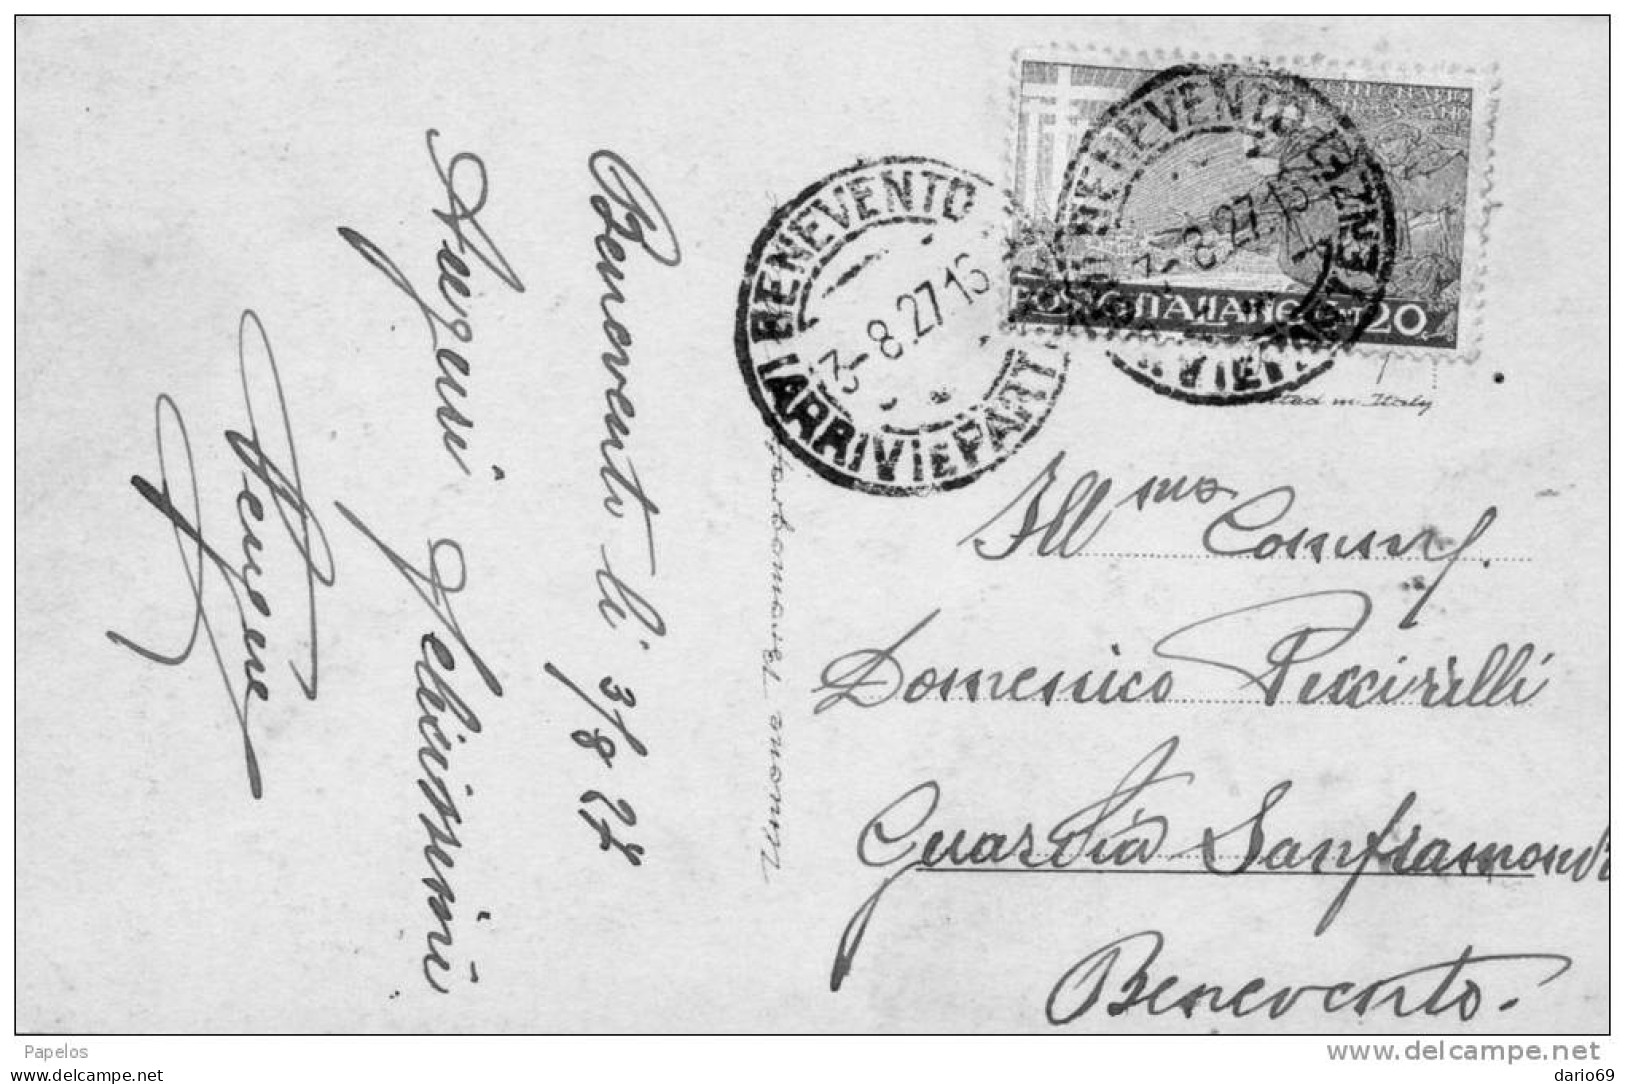 Benevento li 3/8 27
Auguri felicissimi
BENEVENTO
(ARRIVI E PART
3-8.27.16
BENEVENTO
8.27.15
POSTE ITALIANE CENT 20
in Italy
Ill mo Comm.
Domenico Piccirilli
Guardia Sanframondi
Benevento.
Papelos
www.delcampe.net
dario69